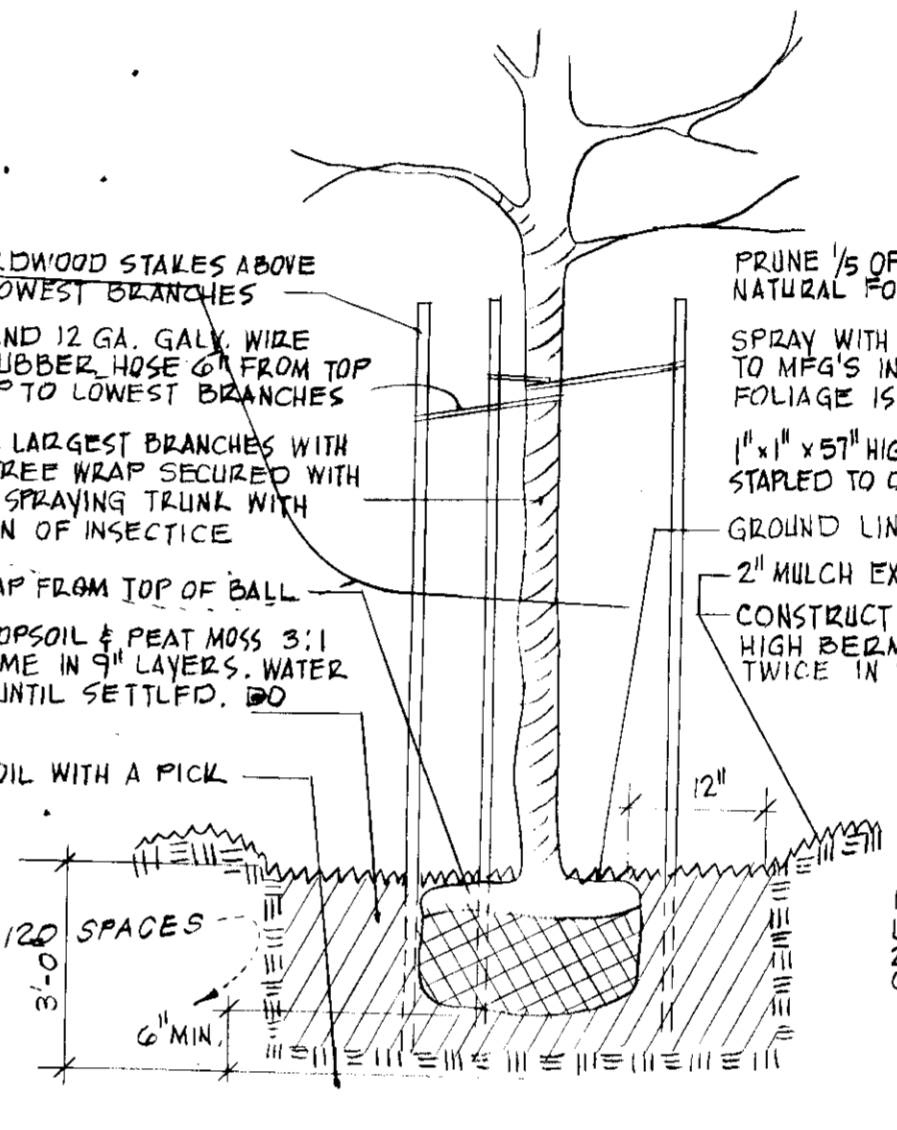 RDWOOD STAKES ABOVE
OWEST BRANCHES
ND 12 GA. GALV. WIRE
UBBER HOSE 6" FROM TOP
P TO LOWEST BRANCHES
LARGEST BRANCHES WITH
REE WRAP SECURED WITH
SPRAYING TRUNK WITH
N OF INSECTICE
AP FROM TOP OF BALL
OPSOIL & PEAT MOSS 3:1
ME IN 9" LAYERS. WATER
UNTIL SETTLED. DO
OIL WITH A PICK
120 SPACES
3'-0
6" MIN.
PRUNE 1/5 OF
NATURAL FO
SPRAY WITH
TO MFG'S IN
FOLIAGE IS
1" x 1" x 57" HIG
STAPLED TO
GROUND LIN
2" MULCH EX
CONSTRUCT
HIGH BERM
TWICE IN
12"